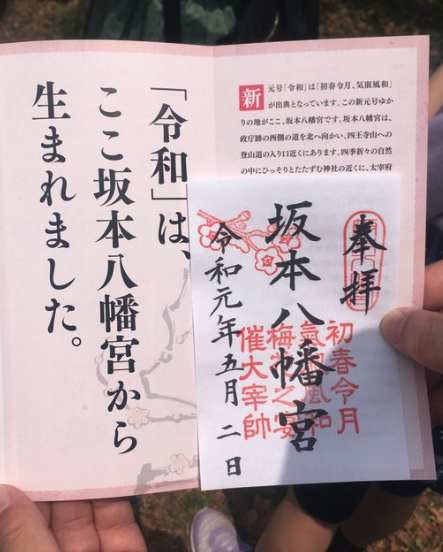 「令和」は、
ここ坂本八幡宮から
生まれました。
新元号「令和」は「初春令月、気淑風和」
が出典となっています。この新元号ゆか
りの地がここ、坂本八幡宮です。坂本八幡宮は、
政庁跡の西側の道を北へ向かい、四王寺山への
登山道の入り口近くにあります。四季折々の自然
の中にひっそりとたたずむ神社の近くに、太宰府
奉拝
坂本八幡宮
令和元年五月二日
初春令月
氣淑風和
梅花之宴
催大宰帥